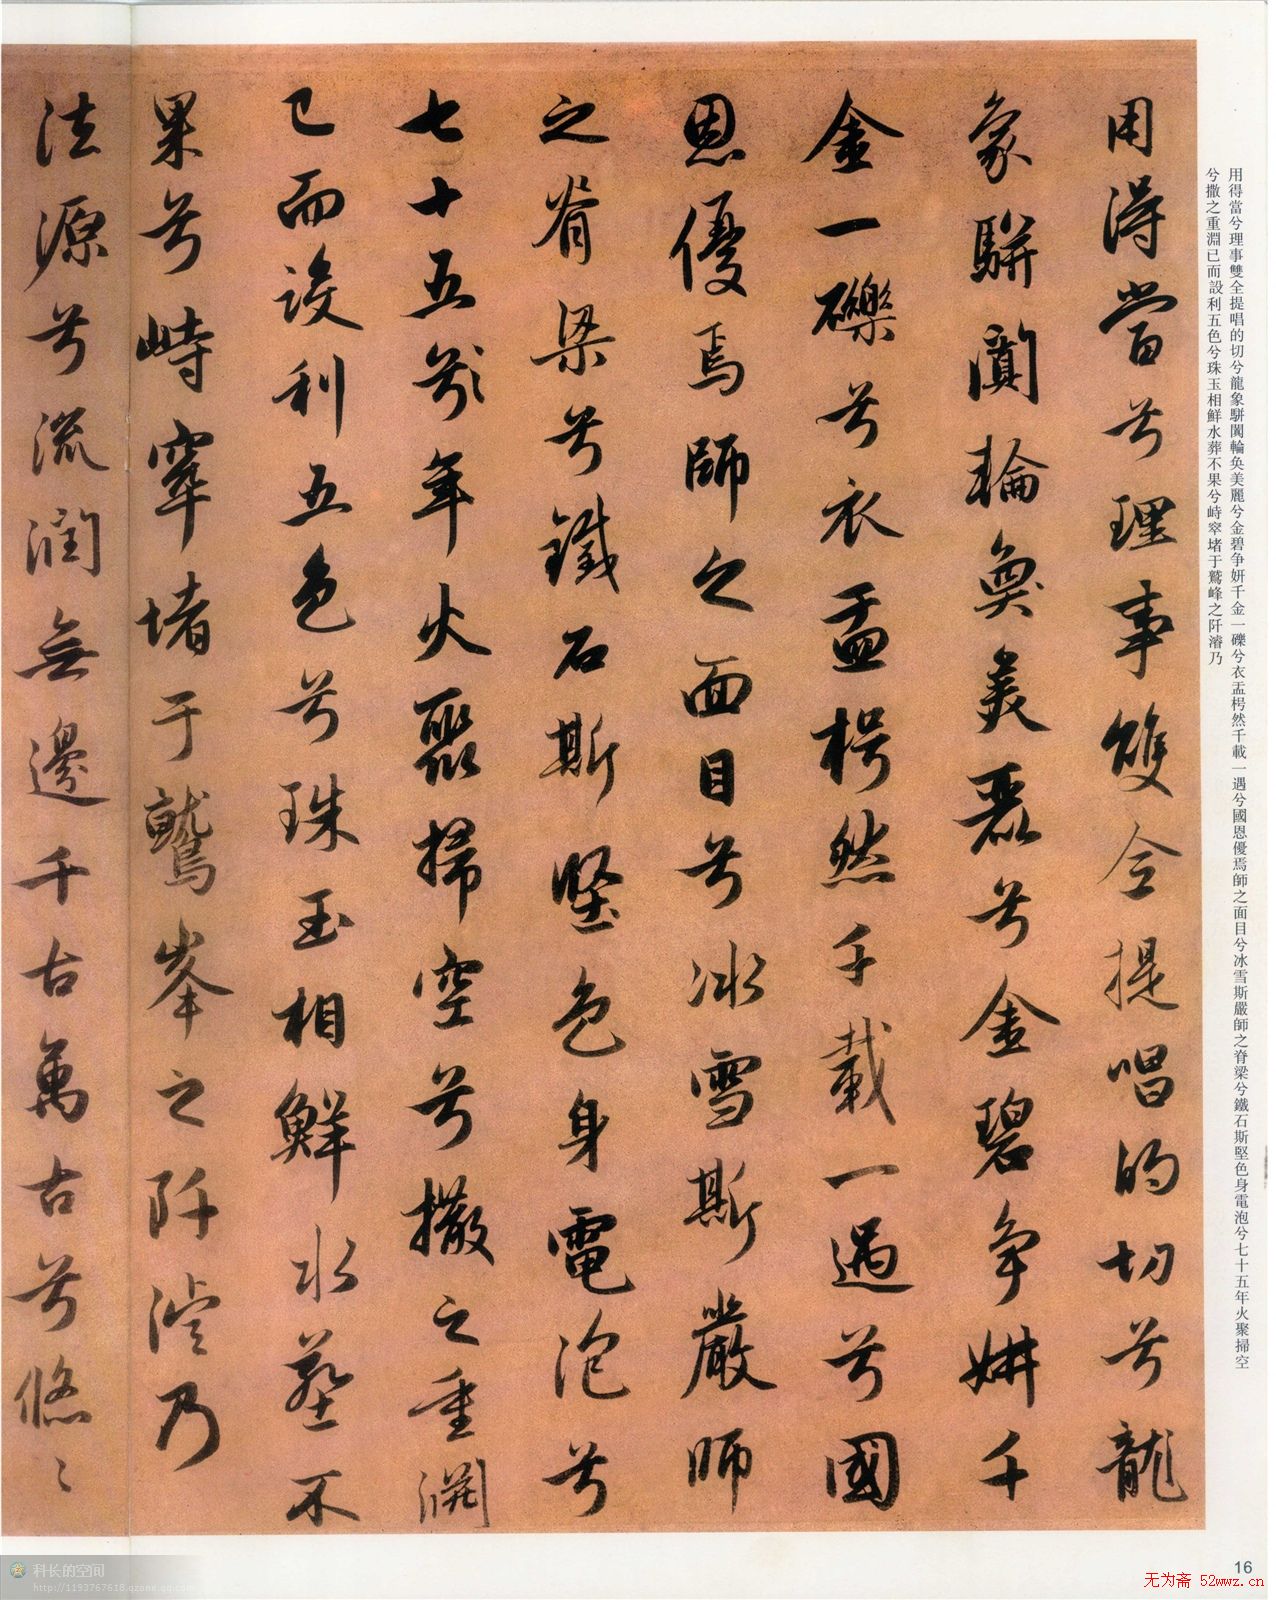 用得當兮理事雙全提唱的切兮龍象駢闐輪奐美麗兮金碧争妍千金一礫兮衣盂枵然千載一遇兮國恩優焉師之面目兮冰雪斯嚴師之脊梁兮鐵石斯堅色身電泡兮七十五年火聚掃空
兮撒之重淵已而設利五色兮珠玉相鮮水葬不果兮峙窣堵于鷲峰之阡濬乃
用得當兮理事雙全提唱的切兮龍
象駢闐輪奐美麗兮金碧争妍千
金一礫兮衣盂枵然千載一遇兮國
恩優焉師之面目兮冰雪斯嚴師
之脊梁兮鐵石斯堅色身電泡兮
七十五兮年火聚掃空兮撒之重淵
已而設利五色兮珠玉相鮮水葬不
果兮峙窣堵于鷲峯之阡濬乃
法源兮流潤無邊千古萬古兮悠〻
16
科长的空间
http://1193767618.qzone.qq.com
无为斋 52wwz.cn